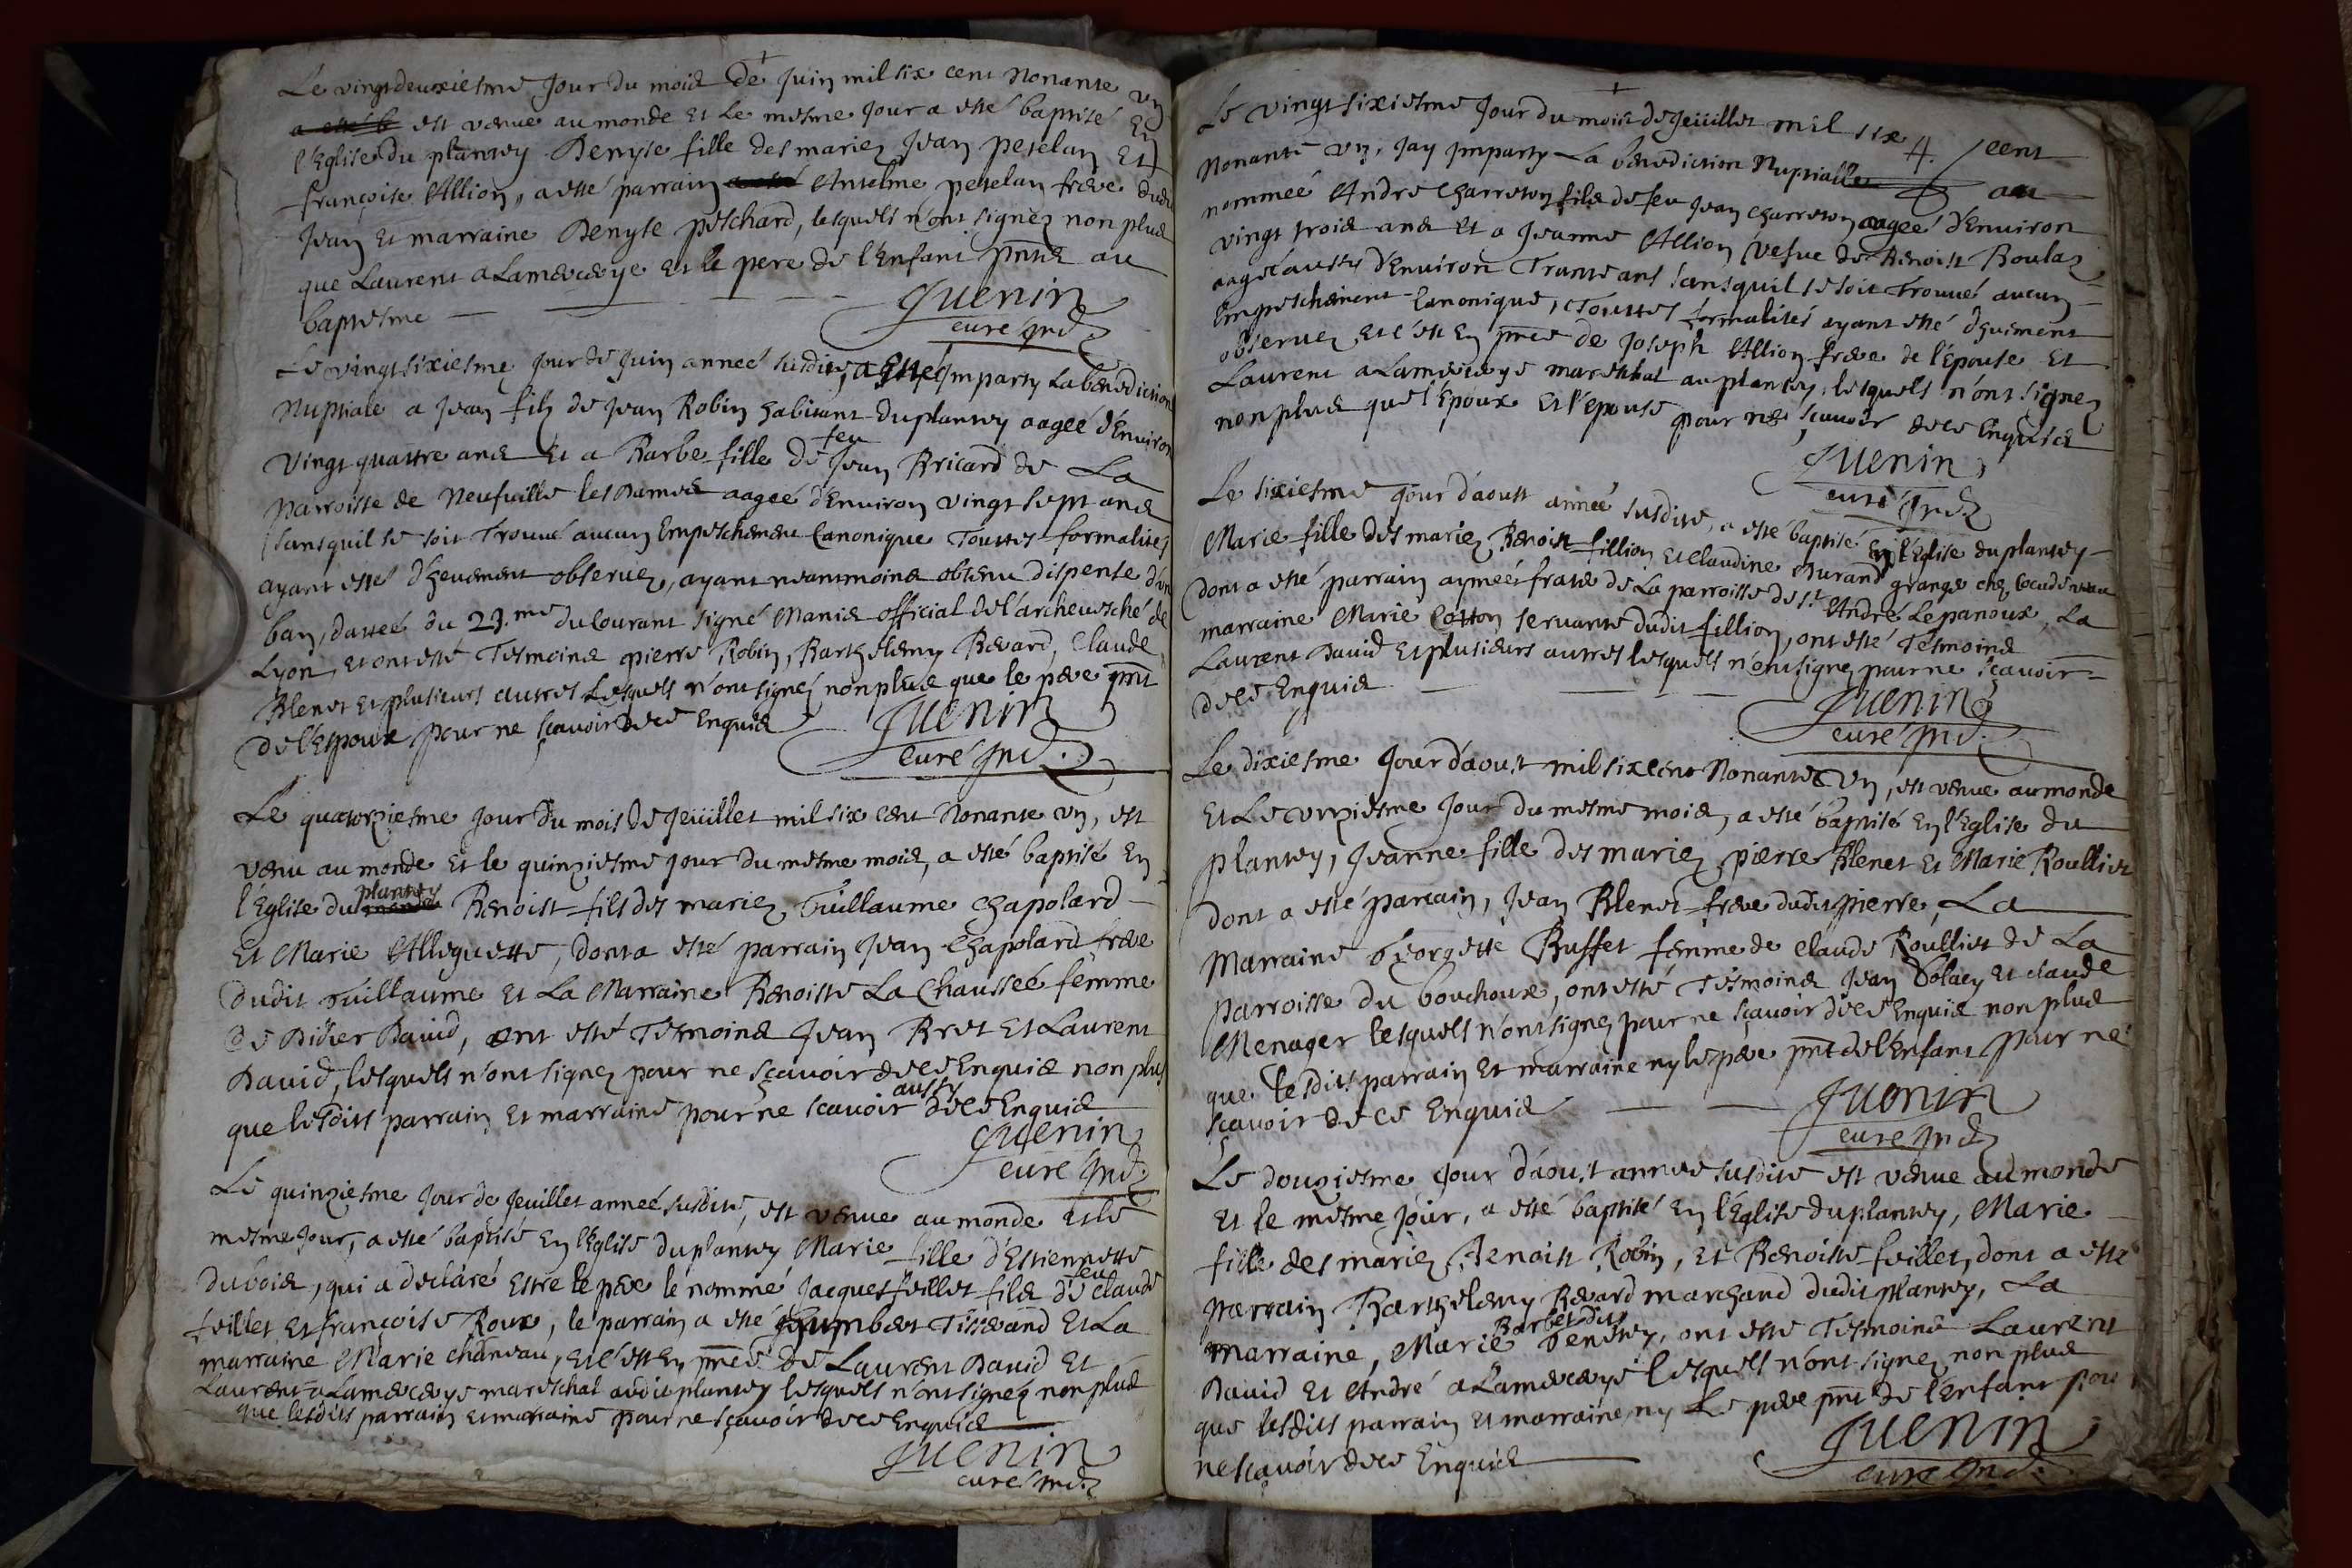 Le vingtdeuxiesme Jour du mois de Juin mil six cent Nonante un
a esté b est venue au monde Et Le mesme Jour a esté baptisé En
l'Eglise du plantey Denyse fille des mariez Jean peselan Et
françoise Allion, a esté parrain a esté Anselme peselan frere dudit
Jean Et marraine Denyse peschard, lesquels n'ont signéz non plus
que Laurent a Lamercerye et le pere de l'Enfant pnts au
baptesme
Juenin
curé Ind.
Le vingtsixiesme Jour de Juin anneé susdite, a Esté Imparty La benediction
Nuptiale a Jean filz de Jean Robin habitant du plantey aagéé d'Environ
vingt quattre ans Et a Barbe fille de feu Jean Bricard de La
parroisse de Neufuille les Dames aageé d'Environ vingt sept ans
sansquil se soit Trouué aucun Empeschement Canonique Touttes formalites
ayant esté dheuement obseruez, ayant neantmoins obtenu dispense d'un
ban, datteé du 23.me du Courant signé Manis official de l'archeuesché de
Lyon, et ont esté Tesmoins pierre Robin, Barthelemy Berard, Claude
Blenet Et plusieurs autres Lesquels n'ont signéz non plus que le pere pnt
de l'Espoux pour ne sçauoir de ce Enquis
Juenin
curé Ind.
Le quatorziesme Jour du mois de Jeuillet mil six cent Nonante un, est
venu au monde Et le quinziesme Jour du mesme mois, a esté baptisé En
l'Eglise du monde plantey Benoist fils des mariez Guillaume Chapolard
Et Marie Alleguette, dont a esté parrain Jean Chapolard frere
dudit Guillaume Et La Marraine Benoiste La Chausseé femme
de Didier Dauid, ont esté Tesmoins Jean Bret Et Laurent
Dauid, lesquels n'ont signez pour ne sçauoir de ce Enquis non plus
que lesdits parrain Et marraine pour ne scauoir aussy de ce Enquis
Juenin
curé Ind.
Le quinziesme Jour de Jeuillet anneé susdite, est venue au monde Et le
mesme Jour, a esté baptisé En l'Eglise du plantey Marie fille d'Estiennette
dubois, qui a declaré Estre le pere le nommé Jacques feillet fils de feu Claude
feillet Et françoise Roux, le parrain a esté humbert Tisserand Et La
marraine Marie chaneau, Et c'est En pnce de Laurent Dauid Et
Laurent a Lamercerye mareschal audit plantey lesquels n'ont signéz non plus
que lesdits parrain Et marraine pour ne sçauoir de ce Enquis
Juenin
curé Ind.
Le vingt sixiesme Jour du mois de Jeuillet mil six cent
Nonante un, Jay Imparty La benediction Nuptialle au
nommeé André Charreton fils de feu Jean Charreton aageé d'Environ
vingt trois ans Et a Jeanne Allion vefue de Benoist Roulaz
aageé aussy d'Environ Trante ans sansquil se soit Trouué aucun
Empeschement Canonique, Touttes formalités ayant esté dheuement
obseruez, Et c'est En pnce de Joseph Allion frere de l'épouse Et
Laurent a Lamercerye mareschal au plantey, lesquels n'ont signez
non plus que l'Epoux Et l'épouse pour ne sçauoir de ce Enquis
Juenin
curé Ind.
Le sixiesme Jour d'aoust année susdite, a esté baptisé En l'Eglise du plantey
Marie fille des mariez Benoist fillion Et Claudine Durand grange chez
dont a esté parrain aymeé frase de La parroisse de st André Lepanoux, La
marraine Marie Cotton seruante dudit fillion, ont esté Tesmoins
Laurent Dauid Et plusieurs autres lesquels n'ont signez pour ne sçauoir
de ce Enquis
Juenin
curé Ind.
Le dixiesme Jour d'aoust mil six cent Nonante un, est venue au monde
Et Le unziesme Jour du mesme mois, a esté baptisé En l'Eglise du
plantey, Jeanne fille des mariez pierre Blenet Et Marie Roulliet
dont a esté parrain, Jean Blenet frere dudit pierre, La
marraine Georgette Buffet femme de Claude Roulliet de La
parroisse du bouchoux, ont esté Tesmoins Jean Et Claude
Menager lesquels n'ont signez pour ne sçauoir de ce Enquis non plus
que lesdits parrain Et marraine ny le pere pnt de l'Enfant pour ne
sçauoir de ce Enquis
Juenin
curé Ind.
Le douziesme Jour d'aoust anneé susdite est venue au monde
Et le mesme Jour, a esté baptisé En l'Eglise du plantey, Marie
fille des mariez Benoist Robin, Et Benoiste feillet, dont a esté
parrain Barthelemy Berard marchand dudit plantey, La
marraine, Marie Barbet dite Genetey, ont esté Tesmoins Laurent
Dauid Et André a Lamercerye lesquels n'ont signez non plus
que lesdits parrain Et marraine, ny Le pere pnt de l'Enfant pour
ne sçauoir de ce Enquis
Juenin
curé Ind.